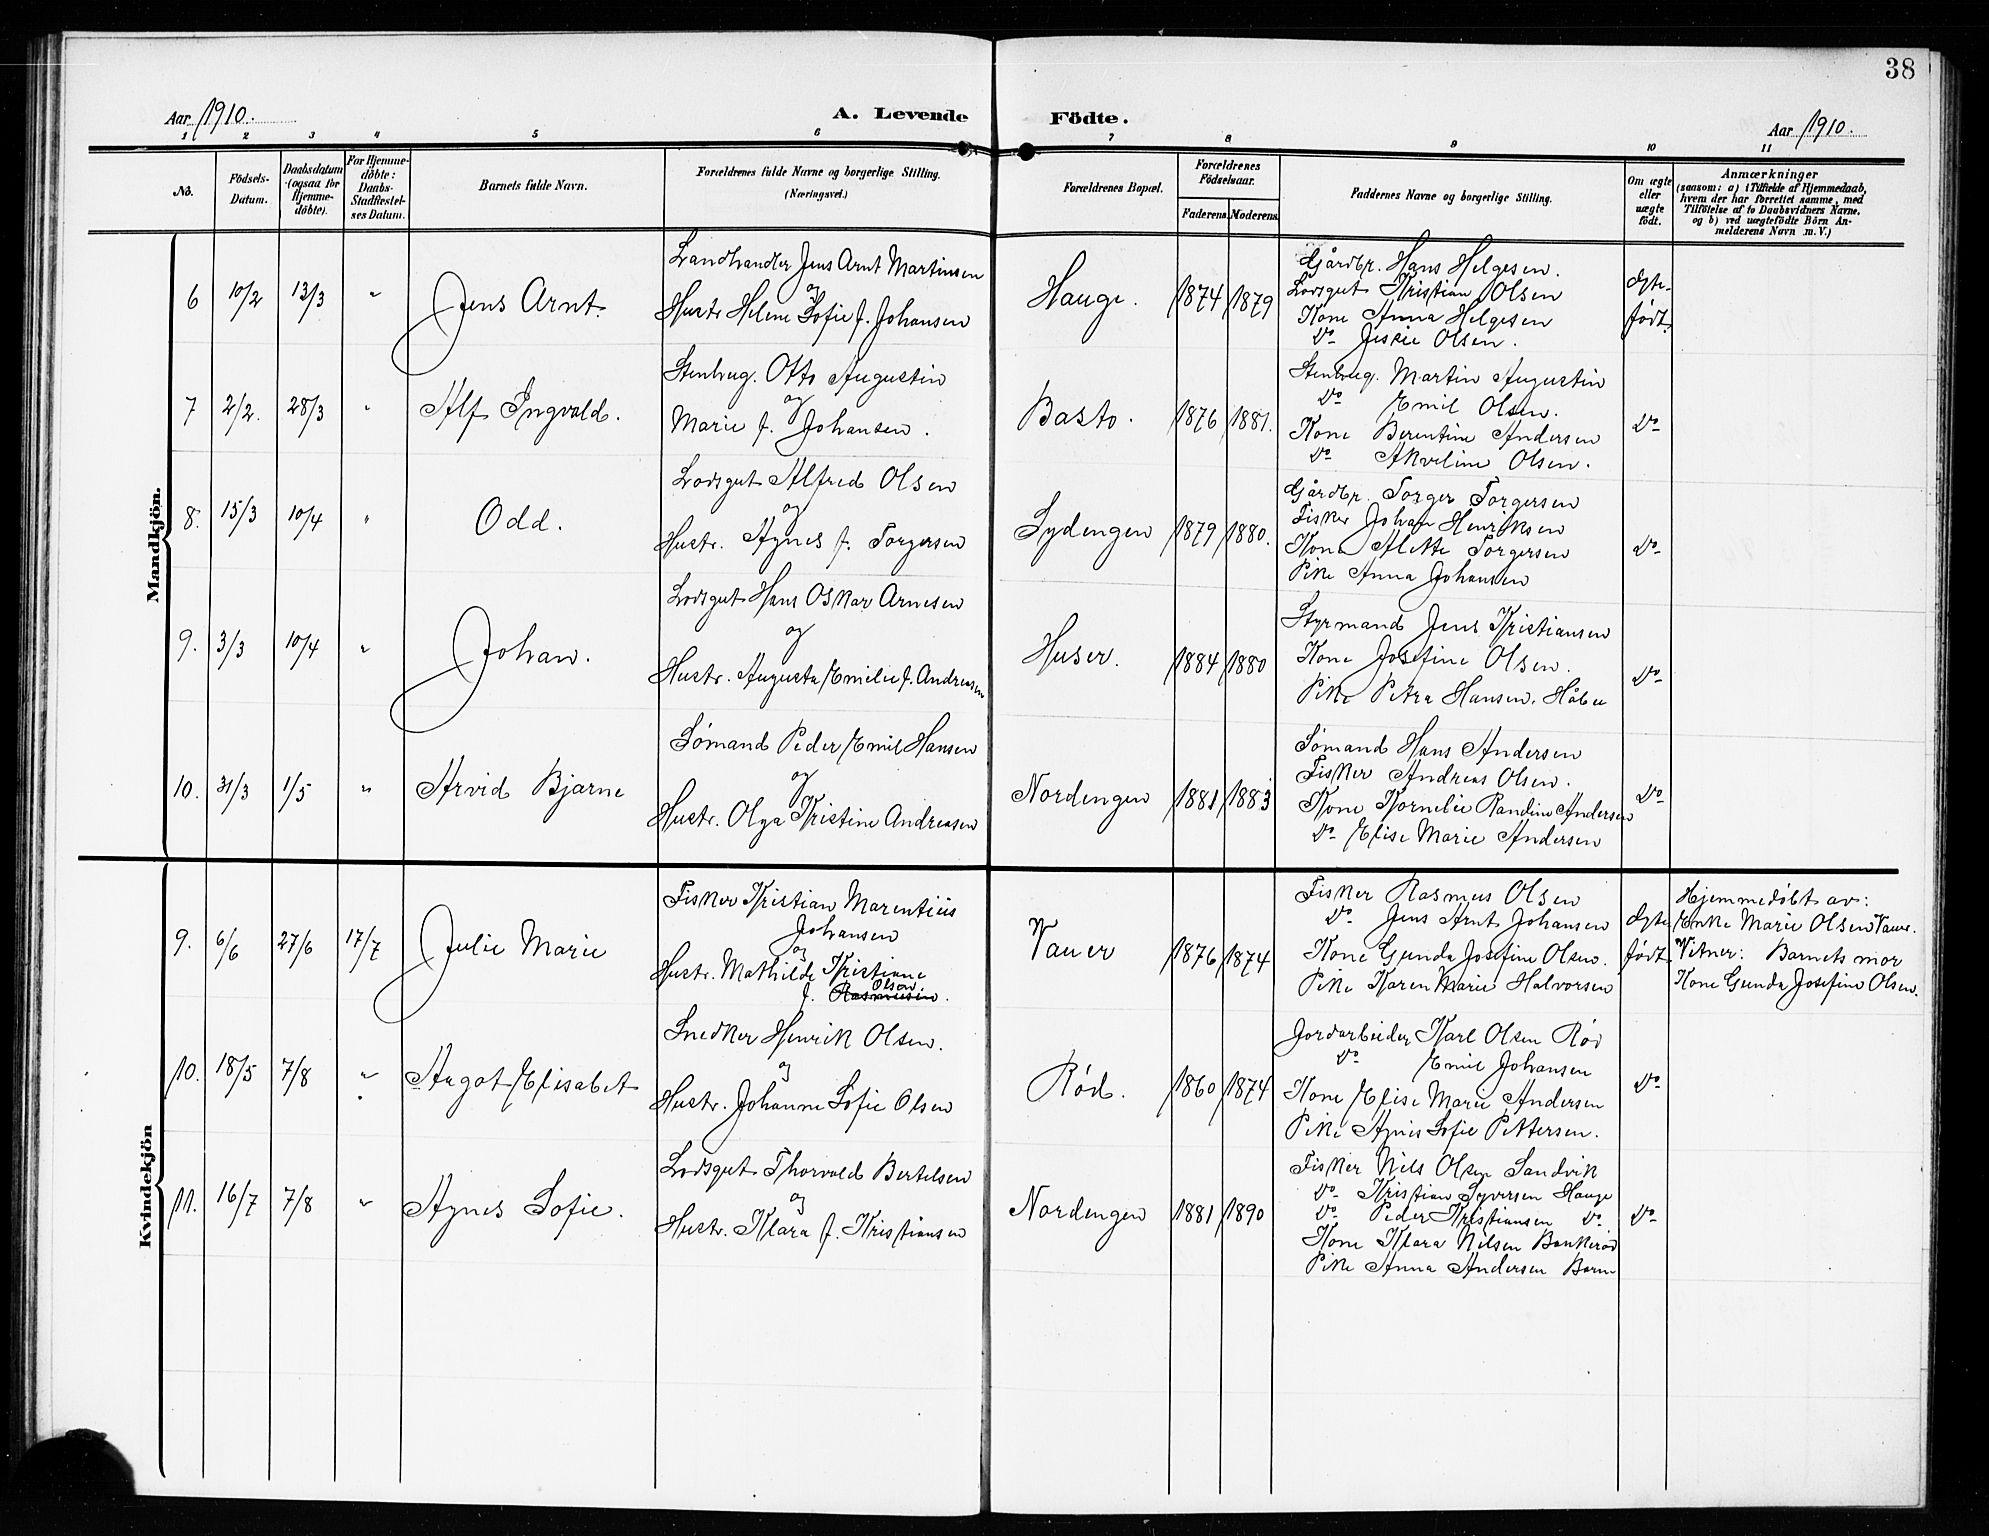 38
Aar 1910.
A. Levende
Födte.
Aar 1910.
1 2 3 4 5 6 7 8 9 10 11
No.
Födsels-Datum.
Daabsdatum (ogsaa for Hjemmedöbte).
For Hjemmedöbte: Daabs-Stadfestelses Datum.
Barnets fulde Navn.
Forældrenes fulde Navne og borgerlige Stilling.
(Næringsvei.)
Forældrenes Bopæl.
Forældrenes Födselsaar.
Faderens. Moderens.
Faddernes Navne og borgerlige Stilling.
Om ægte eller uægte födt.
Anmærkninger
(saasom: a) i Tilfælde af Hjemmedaab,
hvem der har forrettet samme, med
Tilföielse af to Daabsvidners Navne.
og b) ved uægtefödte Börn An-
melderens Navn m. V.)
Mandkjön.
6 10/2 13/3 " Jens Arnt.
Landhandler Jens Arnt Martinsen
og
Hustr Helene Sofie f. Johansen
Hauge. 1874 1879
Gårdbr. Hans Helgesen.
Lodsgut Kristian Olsen
Kone Anna Helgesen
Do Olsen.
Ægte-
født.
7 2/2. 28/3 " Alf Ingvald.
Stenhug. Otto Augustin
og
Marie f. Johansen.
Basto. 1876 1881.
Stenhug. Martin Augustin
Do Emil Olsen.
Kone Berentine Andersen
Do Akveline Olsen.
Do
8. 15/3 10/4 " Odd.
Lodsgut Alfred Olsen
og
Hustr. Agnes f. Torgersen
Sydengen 1879 1880.
Gårdbr. Torger Torgersen
Fisker Johan Henriksen
Kone Alette Torgersen
Pike Anna Johansen
Do
9. 3/3 10/4 " Johan.
Lodsgut Hans Oskar Arnesen
og
Hustr. Augusta Emilie f. Andreasen
Huser. 1884 1880
Styrmand Jens Kristiansen
Kone Josefine Olsen.
Pike Petra Hansen, Håbu
Do
10. 31/3 1/5 " Arvid Bjarne
Sømand Peder Emil Hansen
og
Hustr. Olga Kristine Andreasen
Nordengen 1881 1883
Sømand Hans Andersen
Fisker Andreas Olsen.
Kone Kornelie Randine Andersen
Do Elise Marie Andersen
Do
Kvindekjön
9. 6/6 27/6 17/7 Julie Marie
Fisker Kristian Marentius
Johansen
og
Hustr. Mathilde Kristiane
Olsen
f. Rasmussen.
Vauer 1876 1874
Fisker Rasmus Olsen
Do Jens Arnt Johansen
Kone Gunda Josefine Olsen.
Pike Karen Marie Halvorsen
Ægte
født.
Hjemmedøbt av:
Enke Marie Olsen Vauer.
Vitner: Barnets mor
Kone Gunda Josefine Olsen.
10. 18/5 7/8 " Aagot Elisabet
Snedker Henrik Olsen.
og
Hustr. Johanne Sofie Olsen
Rød. 1860 1874
Jordarbeider Karl Olsen Rød
Do Emil Johansen
Kone Elise Marie Andersen
Pike Agnes Sofie Pettersen.
Do
11. 16/7 7/8 " Agnes Sofie.
Lodsgut Thorvald Bertelsen
og
Hustr. Klara f. Kristiansen
Nordengen 1881 1890
Fisker Nils Olsen Sandvik
Do Kristian Syversen Hauge
Do Peder Kristiansen Do.
Kone Klara Nilsen Bankerød
Pike Anna Andersen
Do